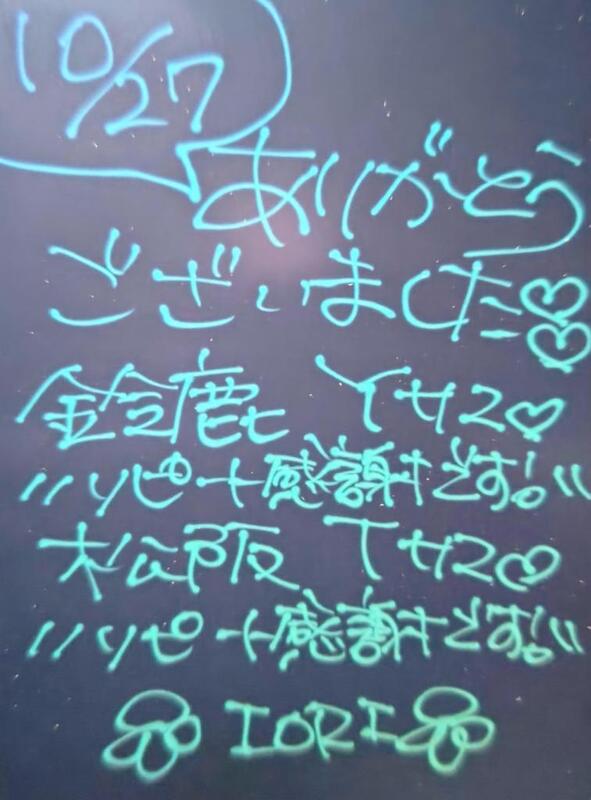 10/27
ありがとう
ございました♡♡
鈴鹿 Yサン♡
〃リピート感謝です!!〃
松阪 Tサン♡
〃リピート感謝です!!〃
IORI